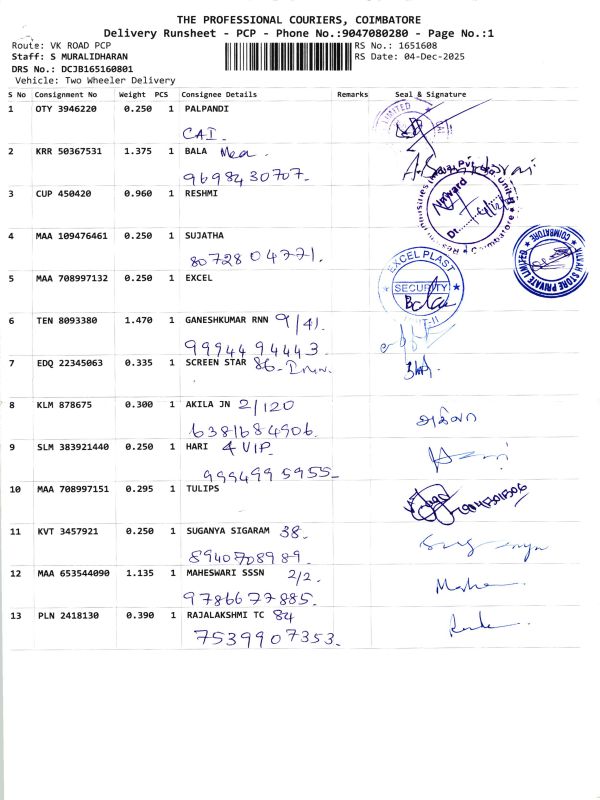 THE PROFESSIONAL COURIERS, COIMBATORE
Delivery Runsheet - PCP - Phone No.:9047080280 - Page No.:1
Route: VK ROAD PCP RS No.: 1651608
Staff: S MURALIDHARAN RS Date: 04-Dec-2025
DRS No.: DCJB165160801
Vehicle: Two Wheeler Delivery
S No Consignment No Weight PCS Consignee Details Remarks Seal & Signature
1 OTY 3946220 0.250 1 PALPANDI
LIMITED
CAI.
2 KRR 50367531 1.375 1 BALA
9698430707.
3 CUP 450420 0.960 1 RESHMI
Inward
4 MAA 109476461 0.250 1 SUJATHA
8072804771.
COIMBATORE
STORE PRIVATE LIMITED
5 MAA 708997132 0.250 1 EXCEL
EXCEL PLAST
SECURITY
UNIT-II
6 TEN 8093380 1.470 1 GANESHKUMAR RNN 9/41.
9994494443.
7 EDQ 22345063 0.335 1 SCREEN STAR 86-
8 KLM 878675 0.300 1 AKILA JN 2/120
அகிலா
6381684906.
9 SLM 383921440 0.250 1 HARI 4 VIP.
9994995955-
10 MAA 708997151 0.295 1 TULIPS
11 KVT 3457921 0.250 1 SUGANYA SIGARAM 38.
8940708989.
12 MAA 653544090 1.135 1 MAHESWARI SSSN 2/2.
9786677885.
13 PLN 2418130 0.390 1 RAJALAKSHMI TC 84
7539907353.